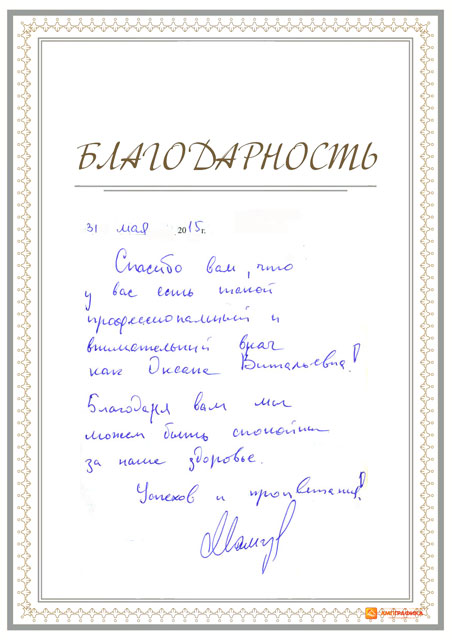 БЛАГОДАРНОСТЬ
31 мая 2015г.
Спасибо вам, что
у вас есть такой
профессиональный и
внимательный врач
как Оксана Витальевна!
Благодаря вам мы
можем быть спокойны
за наше здоровье.
Успехов и процветания!